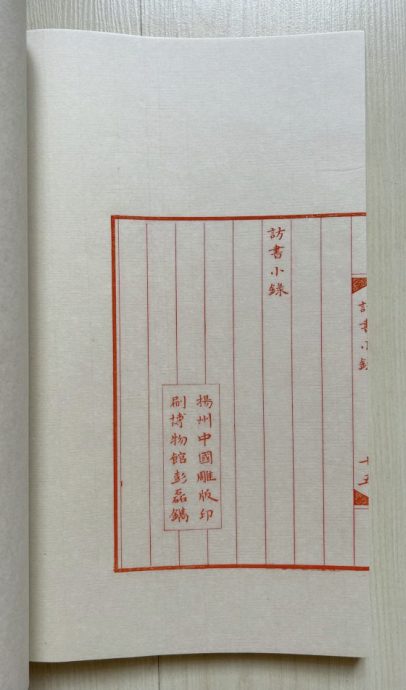 訪書小錄
揚州中國雕版印
刷博物館彭磊鐫
訪書小錄
十五